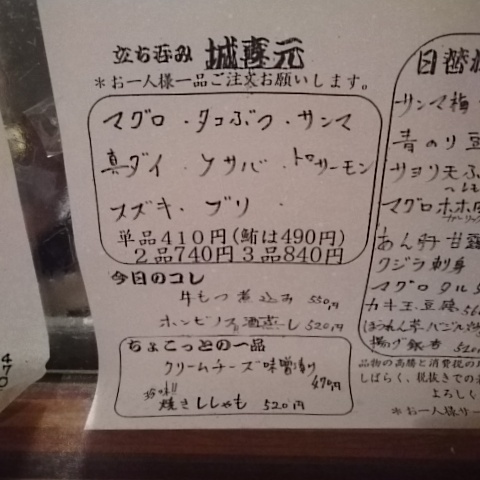 立ち呑み 城喜元
＊お一人様一品ご注文お願いします。
マグロ ・ タコぶつ ・ サンマ
真ダイ ・ シメサバ ・ トロサーモン
スズキ ・ ブリ ・
単品410円(鮪は490円)
2品740円3品840円
今日のコレ
牛もつ煮込み 550円
ホンビノス酒蒸し 520円
ちょこっとの一品
クリームチーズ味噌漬け
470円
珍味!!
焼きししゃも 520円
日替わ
サンマ梅
青のり豆
サヨリ天ぷ
マグロホホ肉
あん肝甘露
クジラ刺身
マグロタル
カキ玉豆腐 56
ほうれん草バ
揚げ銀杏 520
品物の高騰と消費税の
しばらく、税抜きでの
よろしく
＊お一人様サー
470